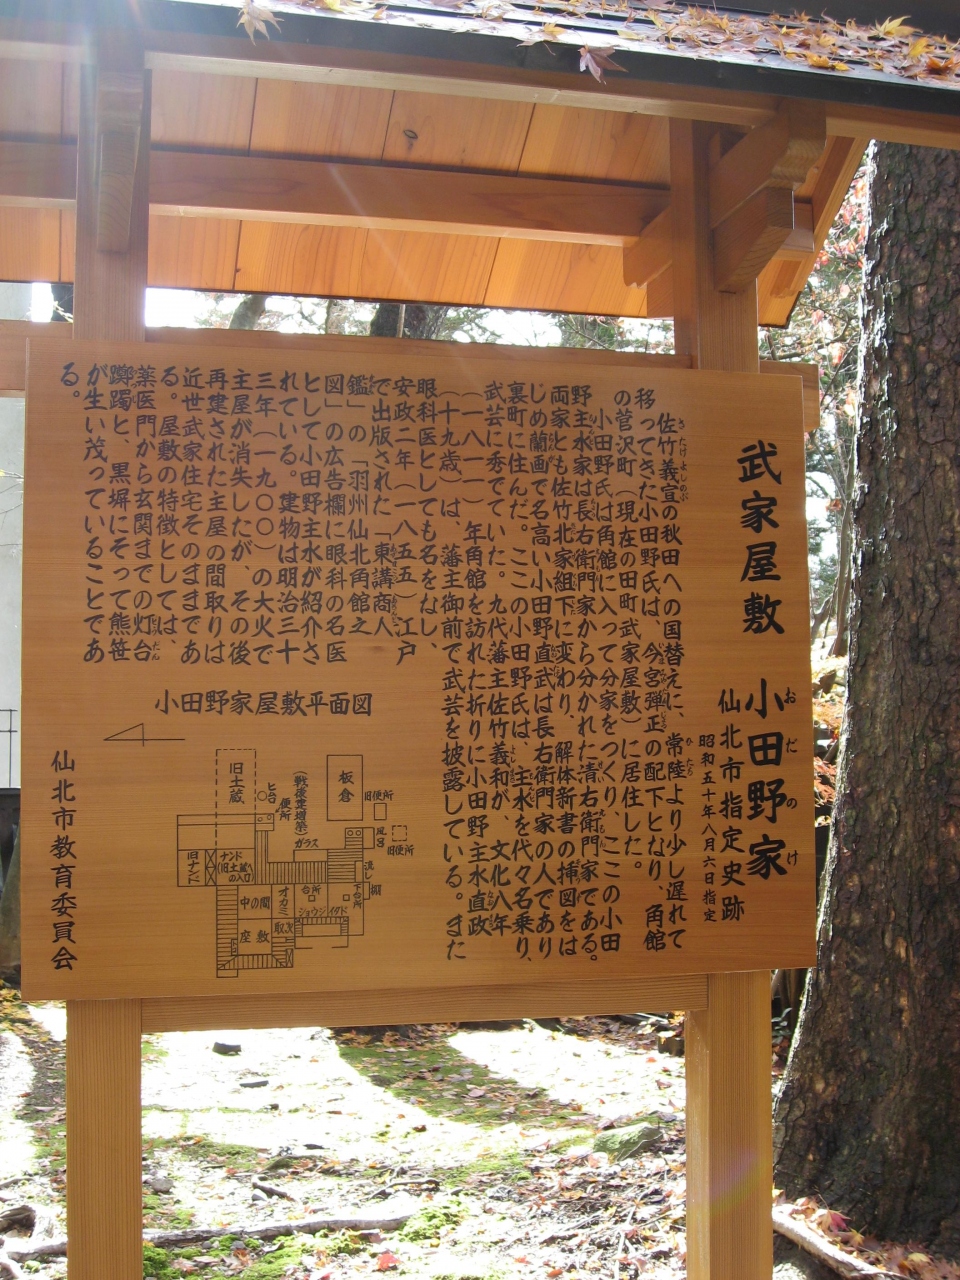 武家屋敷 小田野家
おだのけ
仙北市指定史跡
昭和五十年八月六日指定
佐竹義宣の秋田への国替えに、常陸より少し遅れて
移ってきた小田野氏は、今宮弾正の配下となり、角館
の菅沢町(現在の田町武家屋敷)に居住した。
小田野氏は角館に入って分家をつくり、ここの小田
野主水家は長右衛門家から分かれた清右衛門家である。
両家とも佐竹北家組下に変わり、解体新書の挿図をは
じめ蘭画で名高い小田野直武は長右衛門家の人であり
裏町に住んだ。ここの小田野氏は、主水を代々名乗り、
武芸に秀でていた。九代藩主佐竹義和が、文化八年
(一八一一)年角館を訪れた折りに小田野主水直政
(十九歳)は、藩主御前で武芸を披露している。また
眼科医としても名をなし、
安政二年(一八五五)江戸
で出版された「東講商人
鑑」の「羽州仙北角館之
図」の広告欄に眼科の名医
として小田野主水が紹介さ
れている。建物は明治三十
三年(一九〇〇)の大火で
主屋が消失したが、その後
再建された主屋の間取りは
近世武家住宅そのままであ
る。屋敷の特徴としては、
薬医門から玄関までの灯台
躑躅と、黒塀にそって熊笹
が生い茂っていることであ
る。
小田野家屋敷平面図
旧土蔵
ヒ台
便所
(戦後建増築)
板倉
旧便所
ガラス
風呂
旧便所
旧ナンド
ナンド
(旧土蔵への入口)
流し
棚
中の間
オカミ
台所
下台所
ジョウジイタド
座敷
取次
仙北市教育委員会